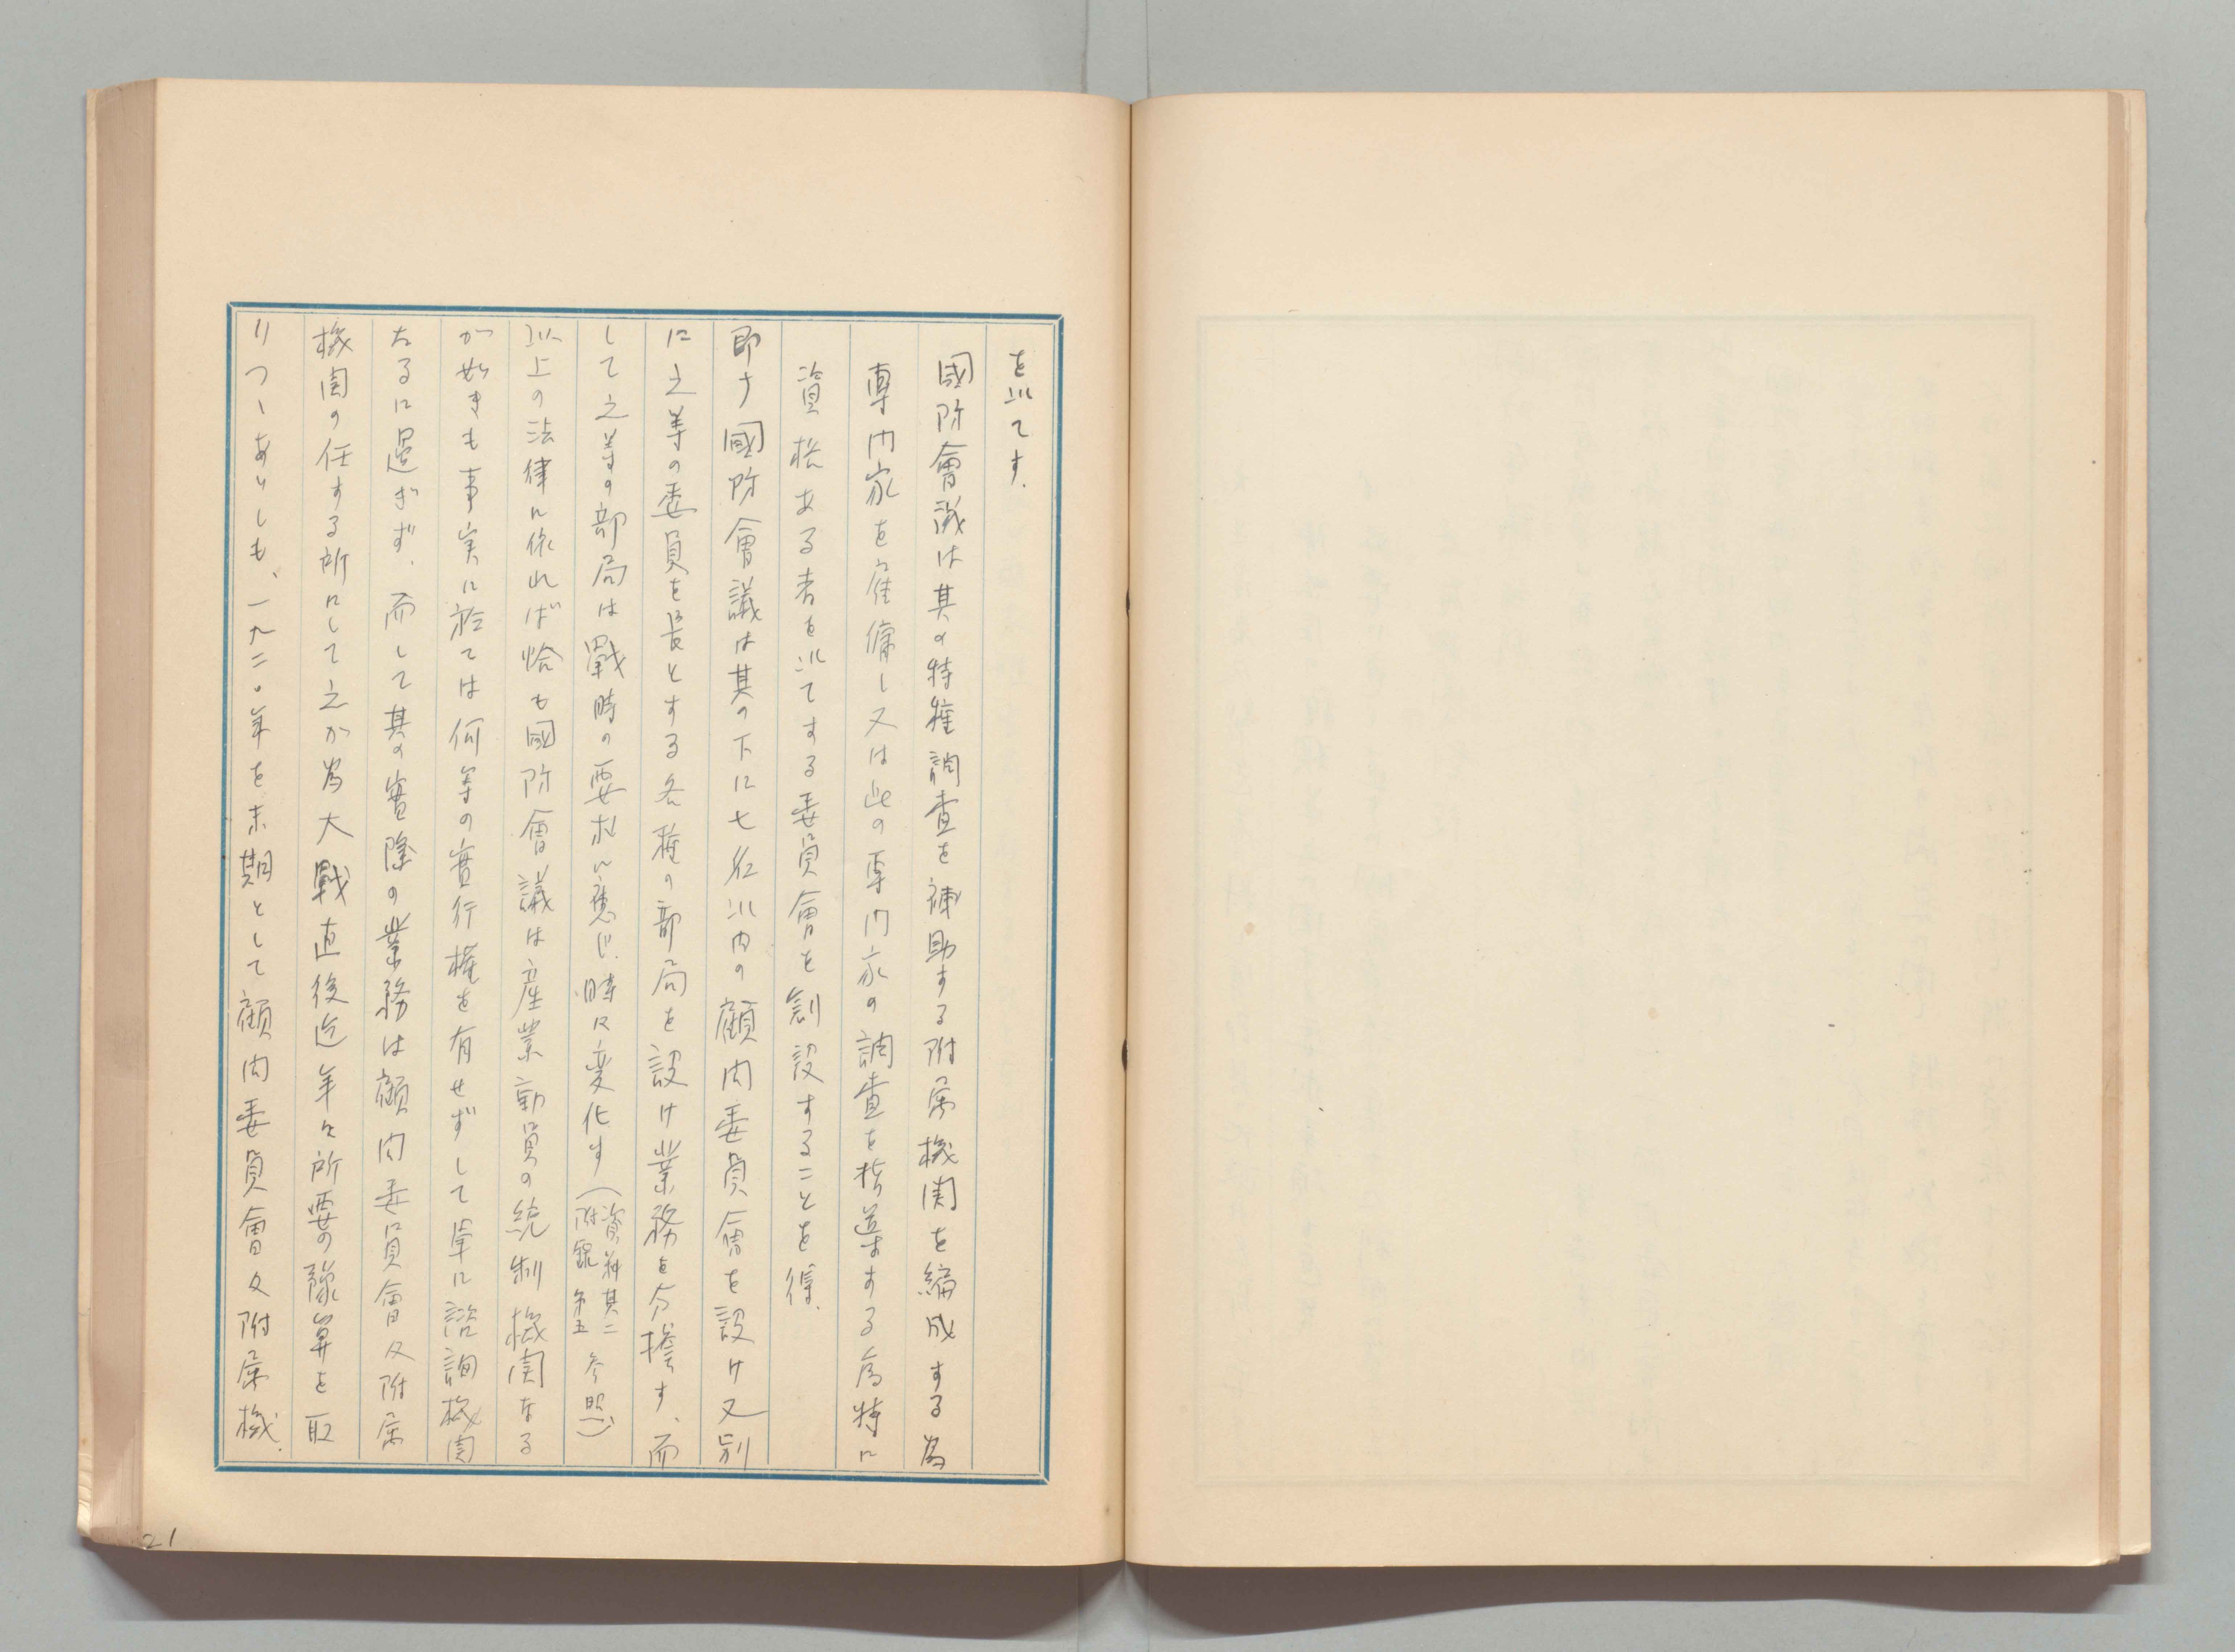 を以てす、
國防會議は其の特種調査を補助する附属機関を編成する為
専門家を雇傭し又は此の専門家の調査を指導する為特に
資格ある者を以てする委員會を創設することを得、
即ち國防會議は其の下に七名以内の顧問委員會を設け又別
に之等の委員を長とする各種の部局を設け業務を分擔す、而
して之等の部局は戰時の要求に應じ時に変化す(資料其二附録第五参照)
以上の法律に依れば恰も國防會議は産業動員の統制機関なる
が如きも事実に於ては何等の實行權を有せずして単に諮詢機関
たるに過ぎず、而して其の實際の業務は顧問委員會及附属
機関の任する所にして之が為大戰直後迄年々所要の豫算を取
りつゝありしも、一九二〇年を末期として顧問委員會及附属機
21